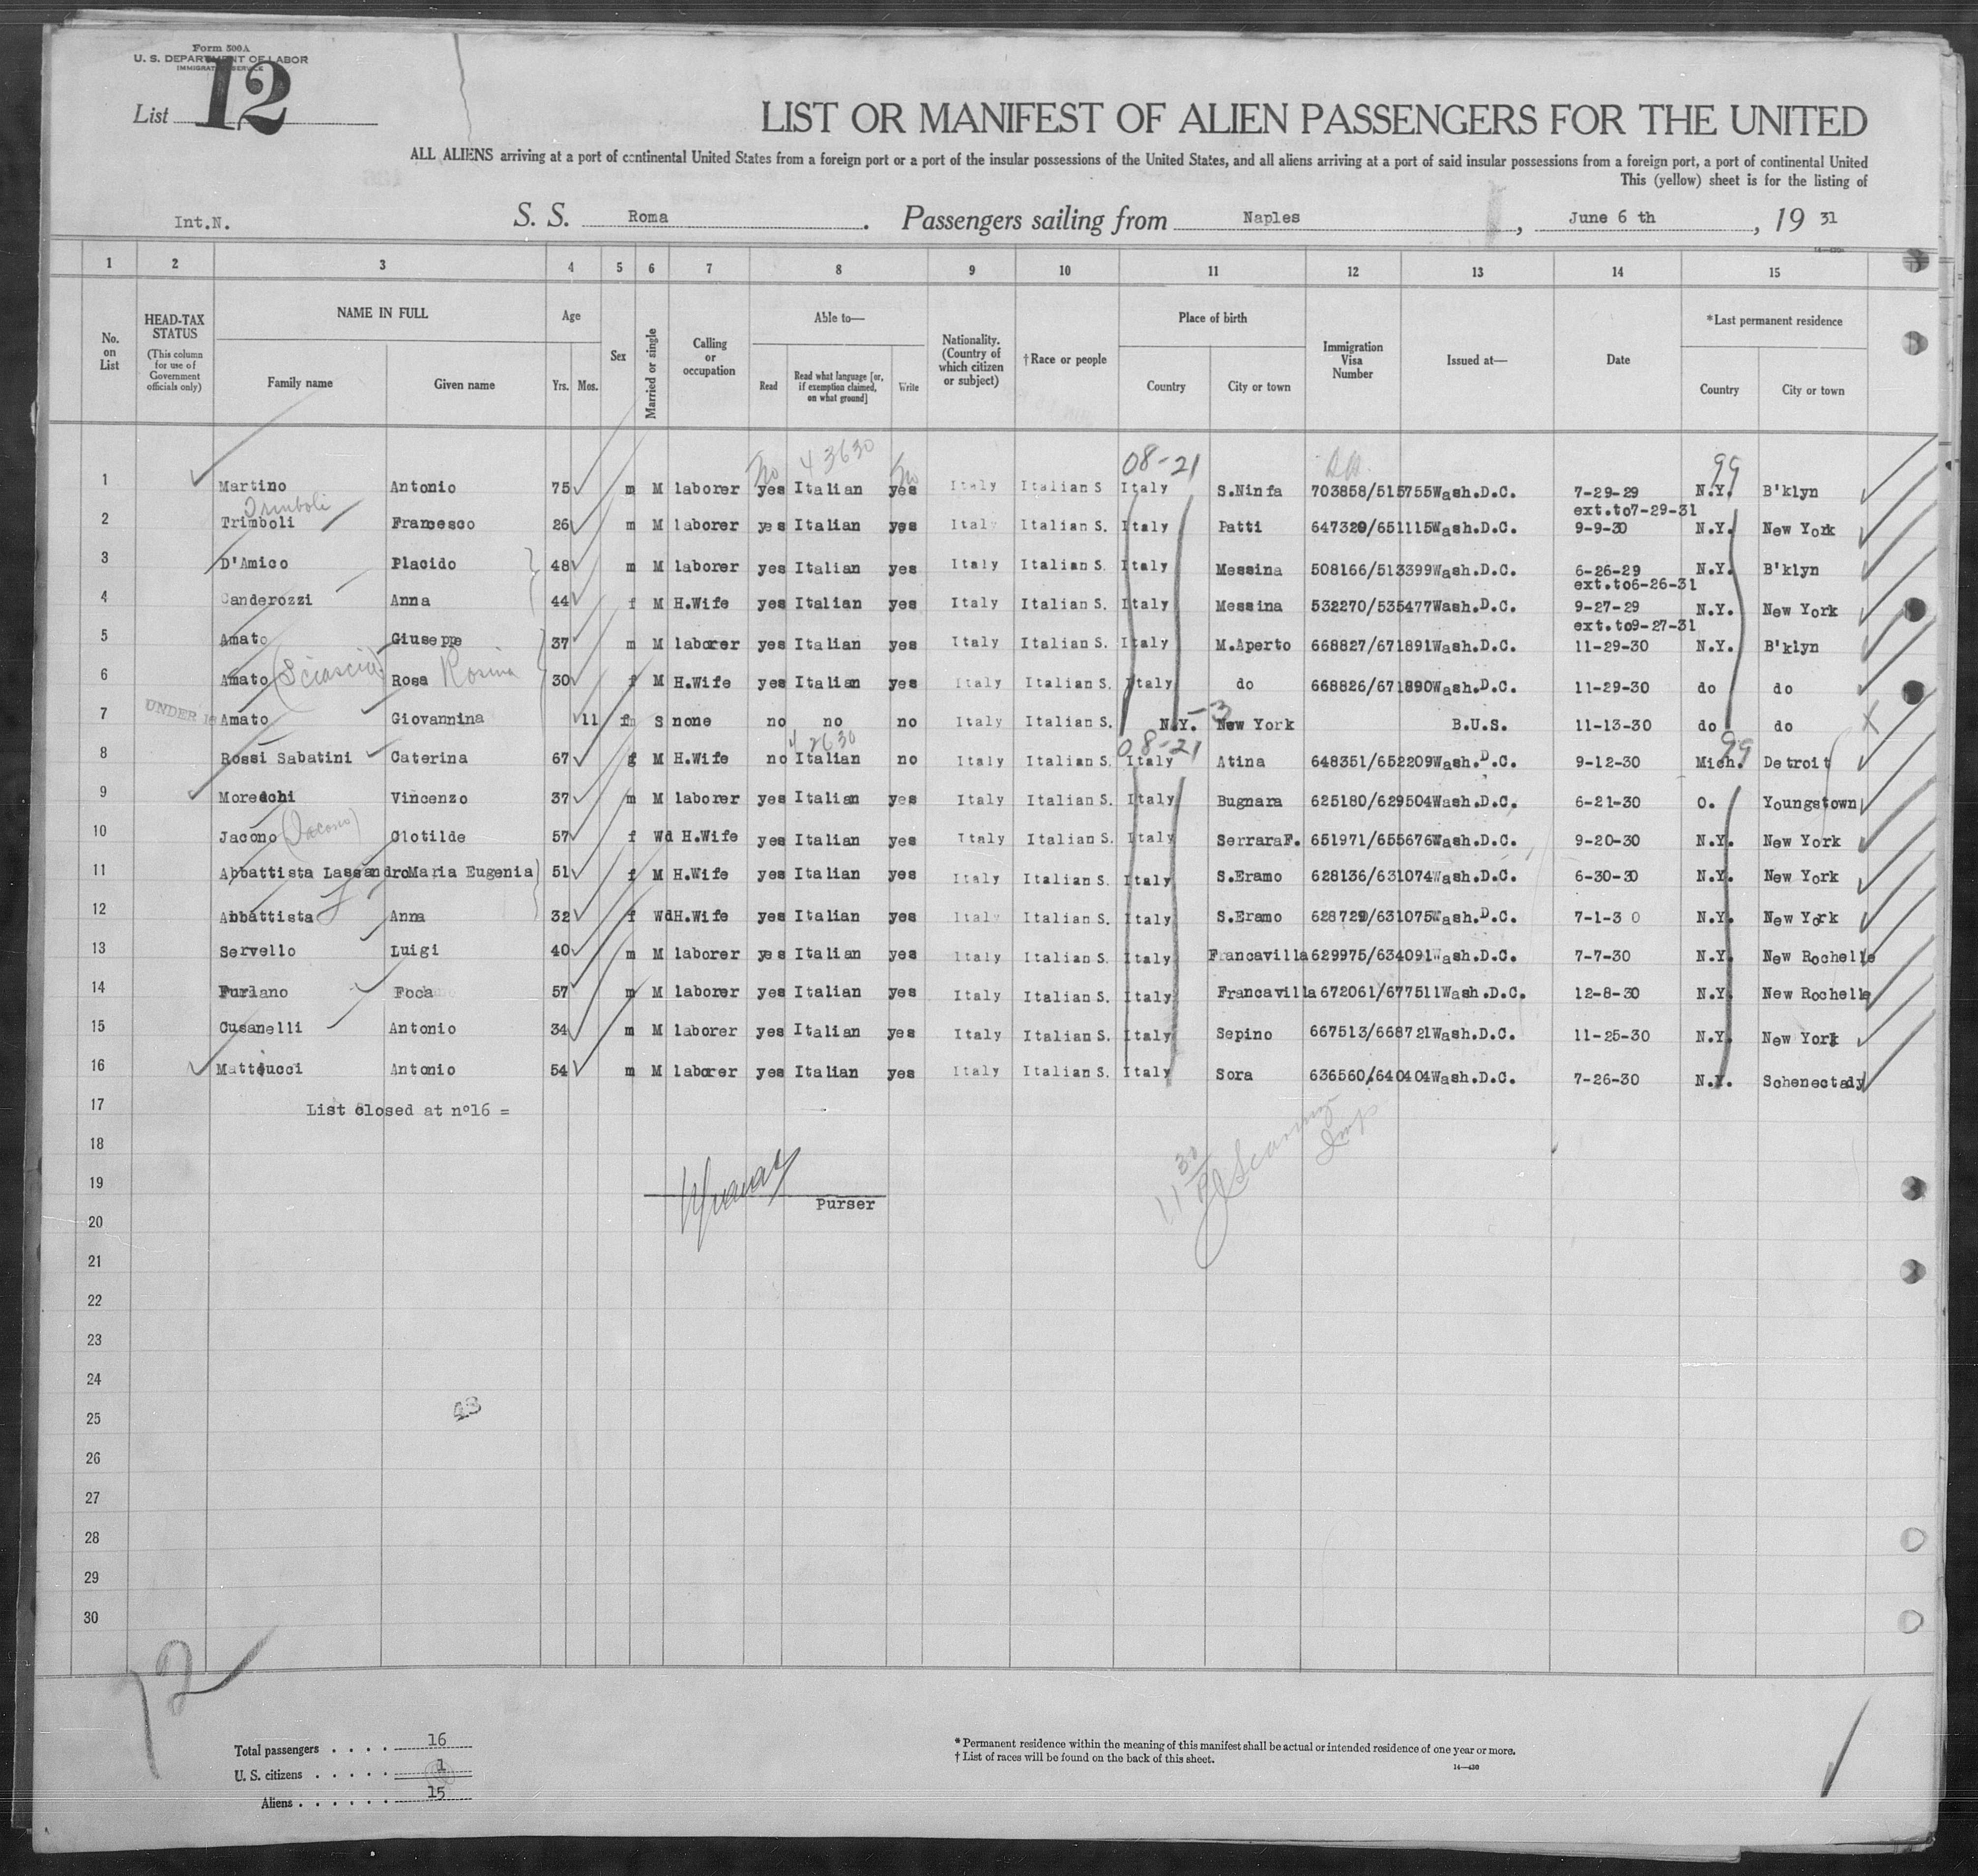 Form 500A
U. S. DEPARTMENT OF LABOR
IMMIGRATION SERVICE
List 12
LIST OR MANIFEST OF ALIEN PASSENGERS FOR THE UNITED
ALL ALIENS arriving at a port of continental United States from a foreign port or a port of the insular possessions of the United States, and all aliens arriving at a port of said insular possessions from a foreign port, a port of continental United
This (yellow) sheet is for the listing of
Int.N. S. S. Roma. Passengers sailing from Naples, June 6 th, 19 31
1 2 3 4 5 6 7 8 9 10 11 12 13 14 15
No. on List
HEAD-TAX STATUS (This column for use of Government officials only)
NAME IN FULL Family name Given name
Age Yrs. Mos.
Sex
Married or single
Calling or occupation
Able to— Read Read what language [or, if exemption claimed, on what ground] Write
Nationality. (Country of which citizen or subject)
†Race or people
Place of birth Country City or town
Immigration Visa Number
Issued at—
Date
*Last permanent residence Country City or town
No 43630 No 08-21 99
1 Martino Antonio 75 m M laborer yes Italian yes Italy Italian S Italy S.Ninfa 703858/515755 Wash.D.C. 7-29-29 ext.to7-29-31 N.Y. B'klyn
Trimboli
2 Trimboli Francesco 26 m M laborer yes Italian yes Italy Italian S. Italy Patti 647320/651115 Wash.D.C. 9-9-30 N.Y. New York
3 D'Amico Placido 48 m M laborer yes Italian yes Italy Italian S. Italy Messina 508166/513399 Wash.D.C. 6-26-29 ext.to6-26-31 N.Y. B'klyn
4 Canderozzi Anna 44 f M H.Wife yes Italian yes Italy Italian S. Italy Messina 532270/535477 Wash.D.C. 9-27-29 ext.to9-27-31 N.Y. New York
5 Amato Giuseppe 37 m M laborer yes Italian yes Italy Italian S. Italy M.Aperto 668827/671891 Wash.D.C. 11-29-30 N.Y. B'klyn
6 Amato (Sciascia) Rosa Rosina 30 f M H.Wife yes Italian yes Italy Italian S. Italy do 668826/671890 Wash.D.C. 11-29-30 do do
7 UNDER 16 Amato Giovannina 11 f S none no no no Italy Italian S. N.Y. -3 New York B.U.S. 11-13-30 do do X
42630 08-21 99
8 Rossi Sabatini Caterina 67 f M H.Wife no Italian no Italy Italian S. Italy Atina 648351/652209 Wash.D.C. 9-12-30 Mich. Detroit
9 Moreschi Vincenzo 37 m M laborer yes Italian yes Italy Italian S. Italy Bugnara 625180/629504 Wash.D.C. 6-21-30 O. Youngstown
10 Jacono (Iacono) Clotilde 57 f Wd H.Wife yes Italian yes Italy Italian S. Italy SerraraF. 651971/655676 Wash.D.C. 9-20-30 N.Y. New York
11 Abbattista Lassandro Maria Eugenia 51 f M H.Wife yes Italian yes Italy Italian S. Italy S.Eramo 628136/631074 Wash.D.C. 6-30-30 N.Y. New York
12 Abbattista Anna 32 f Wd H.Wife yes Italian yes Italy Italian S. Italy S.Eramo 628729/631075 Wash.D.C. 7-1-30 N.Y. New York
13 Servello Luigi 40 m M laborer yes Italian yes Italy Italian S. Italy Francavilla 629975/634091 Wash.D.C. 7-7-30 N.Y. New Rochelle
14 Furlano Foca 57 m M laborer yes Italian yes Italy Italian S. Italy Francavilla 672061/677511 Wash.D.C. 12-8-30 N.Y. New Rochelle
15 Cusanelli Antonio 34 m M laborer yes Italian yes Italy Italian S. Italy Sepino 667513/668721 Wash.D.C. 11-25-30 N.Y. New York
16 Matteucci Antonio 54 m M laborer yes Italian yes Italy Italian S. Italy Sora 636560/640404 Wash.D.C. 7-26-30 N.Y. Schenectady
17 List closed at nº16 =
18
19
Purser
20
21
22
23
24
25 43
26
27
28
29
30
Total passengers . . . . 16
U. S. citizens . . . . . 1
Aliens . . . . . . 15
* Permanent residence within the meaning of this manifest shall be actual or intended residence of one year or more.
† List of races will be found on the back of this sheet.
14—430